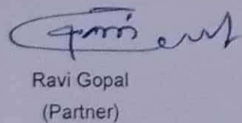 Ravi Gopal
(Partner)